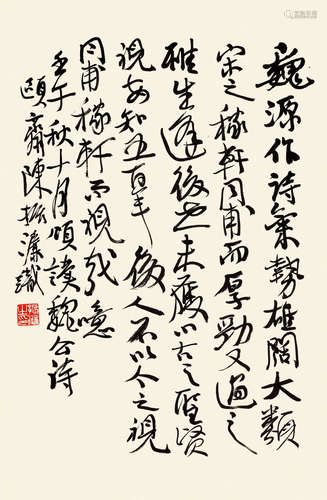 魏源作詩氣勢雄闊大類
宋之稼軒同甫而厚勁又過之
雖生逢後世未應以古之聖賢
視安知五百年後人不以今之視
同甫稼軒而視哉噫
壬午秋十月頌讀魏公詩
頤齋陳振濂識